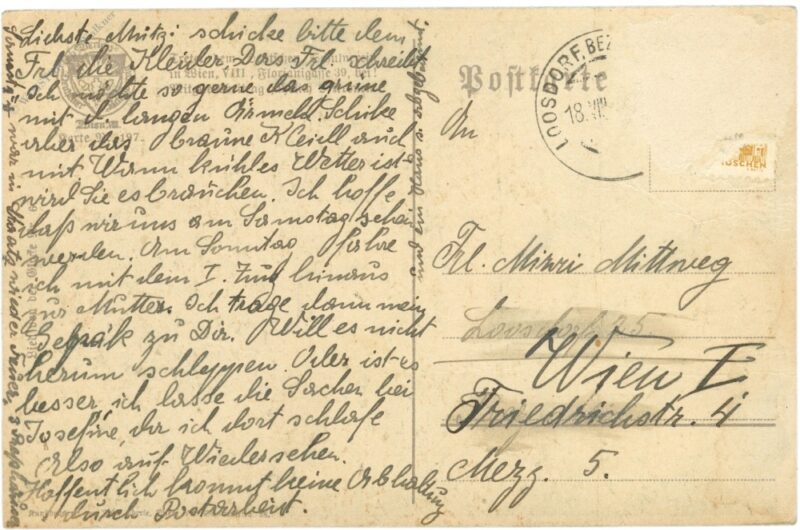 Liebste Mitzi schicke bitte dem
Frl. die Kleider. Das Frl. schreibt
Ich möchte so gerne das grüne
mit d. langen Ärmeln. Schike
aber das braune Kleid auch
mit. Wann kühles Wetter ist
wird Sie es brauchen. Ich hoffe
daß wir uns am Samstag sehen
werden. Am Sonntag fahre
ich mit dem I. Zug hinaus
zur Mutter. Ich trage dann mein
Gepäk zu Dir. Will es nicht
herum schleppen. Oder ist es
besser ich lasse die Sachen bei
Josefine, da ich dort schlafe
Also auf Wiedersehen.
Hoffentlich kommt keine Abhaltung
durch Postarbeit.
war in wieder
in Wien, VIII, Florianigasse 39, bei
Karte Nr. 197.
Postkarte
LOOSDORF, BEZ
18.VIII
An
Frl. Mizzi Mittweg
Loosdorf 25
Wien I
Friedrichstr. 4
Mezz. 5.